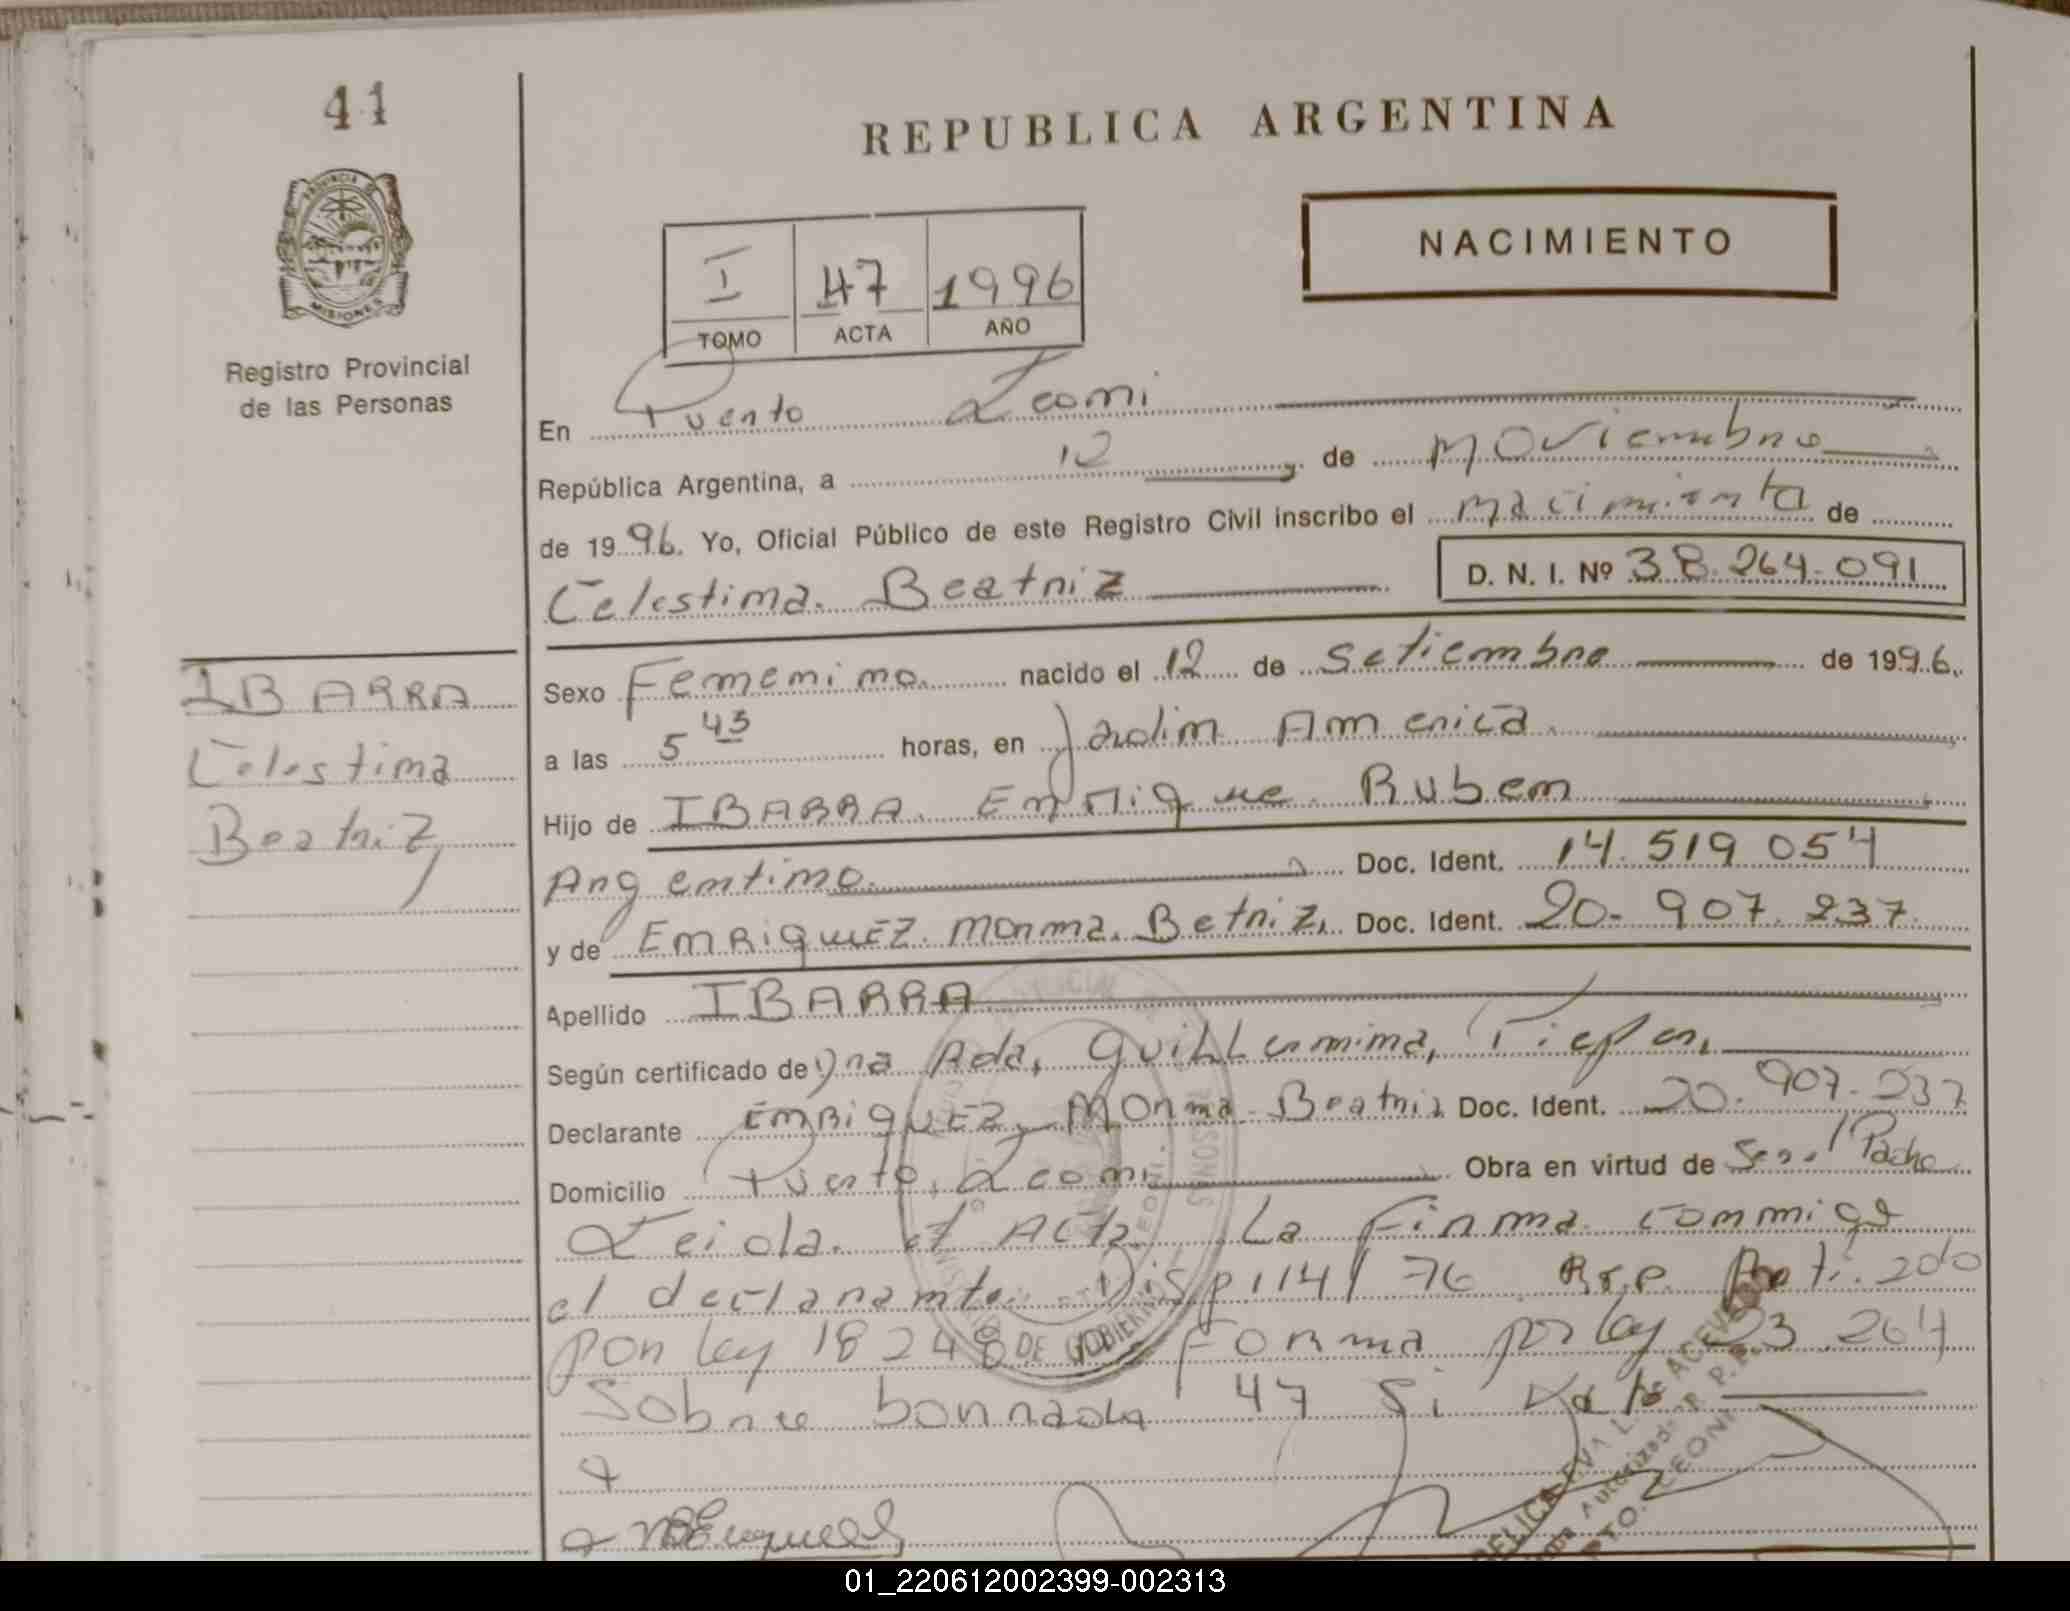 41
REPUBLICA ARGENTINA
PROVINCIA DE
MISIONES
Registro Provincial
de las Personas
NACIMIENTO
I 47 1996
TOMO ACTA AÑO
En Puerto Leoni
República Argentina, a 12 de Noviembre
de 1996. Yo, Oficial Público de este Registro Civil inscribo el nacimiento de
Celestina. Beatriz D. N. I. Nº 38.264.091
IBARRA
Celestina
Beatriz
Sexo Femenino. nacido el 12 de Setiembre de 1996.
a las 5 45 horas, en Jardin America.
Hijo de IBARRA. Enrique. Ruben
Argentino. Doc. Ident. 14.519.054
y de ENRIQUEZ. Norma. Betriz, Doc. Ident. 20.907.237.
Apellido IBARRA
Según certificado de Dra Ada, Guillermina,
Declarante ENRIQUEZ, Norma. Beatriz Doc. Ident. 20.907.237
Domicilio Puerto, Leoni. Obra en virtud de
Leida. el Acta La Firma conmigo
el declarante. Disp 114/76 R.P.P.
por ley 18248 Forma por ley 23.264
Sobre borrado 47 Si Vale
DE GOBIERNO
ACEVEDO
01_220612002399-002313